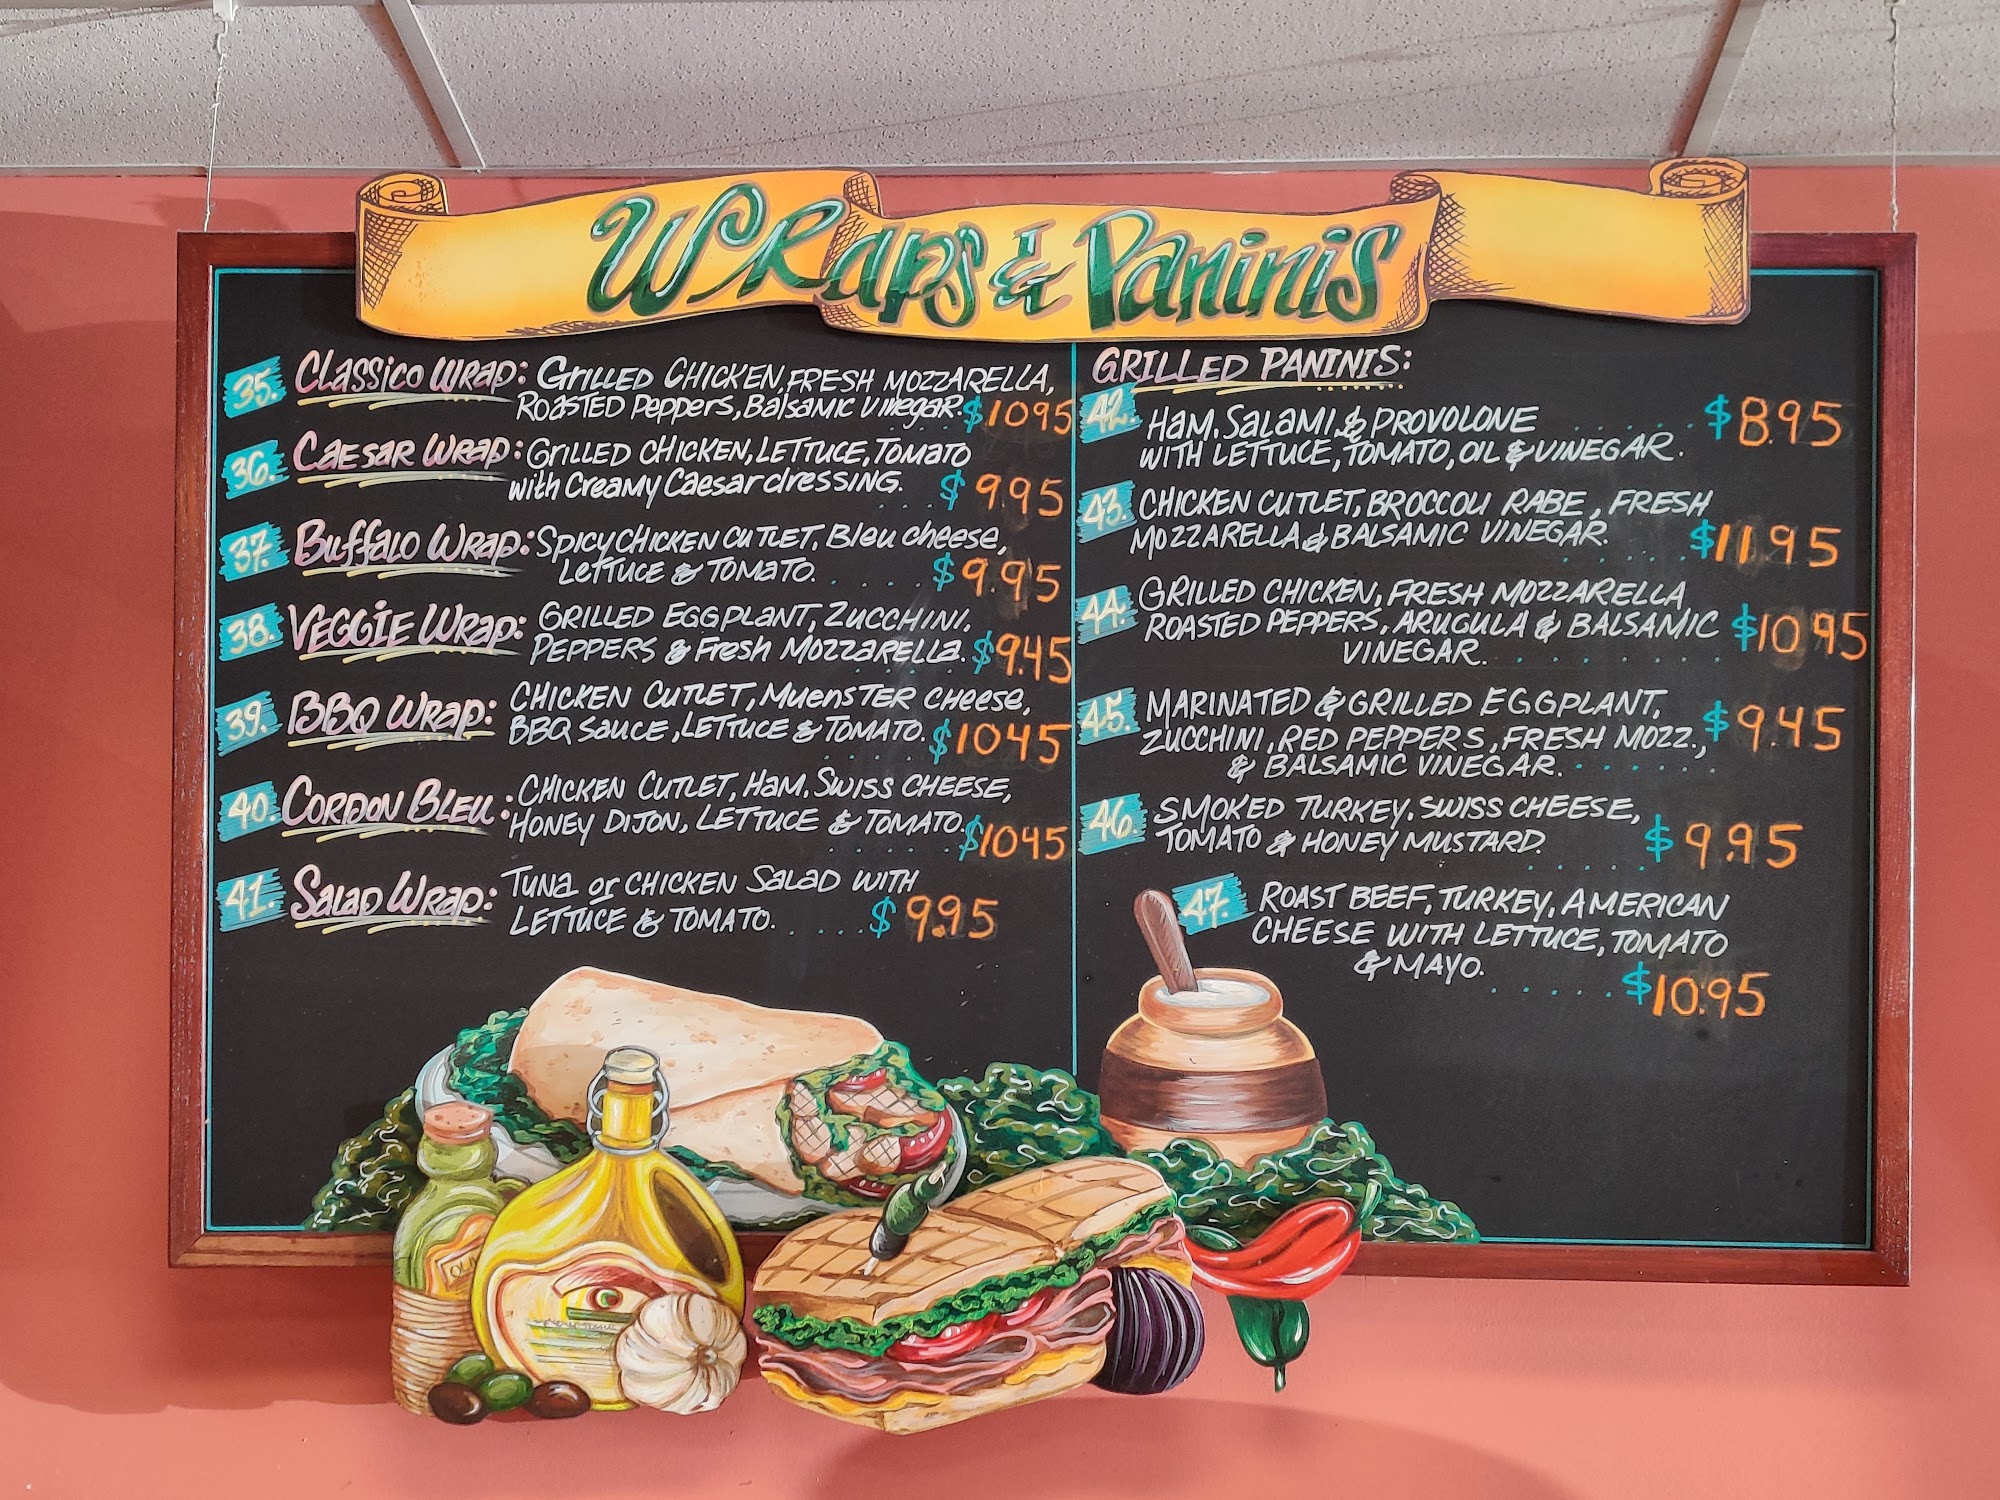 Wraps & Paninis
35. Classico Wrap: Grilled Chicken, Fresh Mozzarella,
Roasted Peppers, Balsamic Vinegar. $10 95
36. Caesar Wrap: Grilled Chicken, Lettuce, Tomato
with Creamy Caesar dressing. $9.95
37. Buffalo Wrap: Spicy Chicken Cutlet, Bleu cheese,
Lettuce & Tomato. . . . . . $9.95
38. Veggie Wrap: Grilled Eggplant, Zucchini,
Peppers & Fresh Mozzarella. $9.45
39. BBQ Wrap: Chicken Cutlet, Muenster cheese,
BBQ Sauce, Lettuce & Tomato. $10 45
40. Cordon Bleu: Chicken Cutlet, Ham, Swiss cheese,
Honey Dijon, Lettuce & Tomato. $10 45
41. Salad Wrap: Tuna or Chicken Salad with
Lettuce & Tomato. . . . . . $9.95
GRILLED PANINIS:
42. HAM, SALAMI & PROVOLONE . . . . . . $8.95
WITH LETTUCE, TOMATO, OIL & VINEGAR.
43. CHICKEN CUTLET, BROCCOLI RABE, FRESH
MOZZARELLA & BALSAMIC VINEGAR. . . . . . $11.95
44. GRILLED CHICKEN, FRESH MOZZARELLA
ROASTED PEPPERS, ARUGULA & BALSAMIC $10.95
VINEGAR. . . . . . . .
45. MARINATED & GRILLED EGGPLANT, $9.45
ZUCCHINI, RED PEPPERS, FRESH MOZZ.,
& BALSAMIC VINEGAR. . . . . . .
46. SMOKED TURKEY, SWISS CHEESE,
TOMATO & HONEY MUSTARD. . . . . $9.95
47. ROAST BEEF, TURKEY, AMERICAN
CHEESE WITH LETTUCE, TOMATO
& MAYO.
. . . . . . $10.95